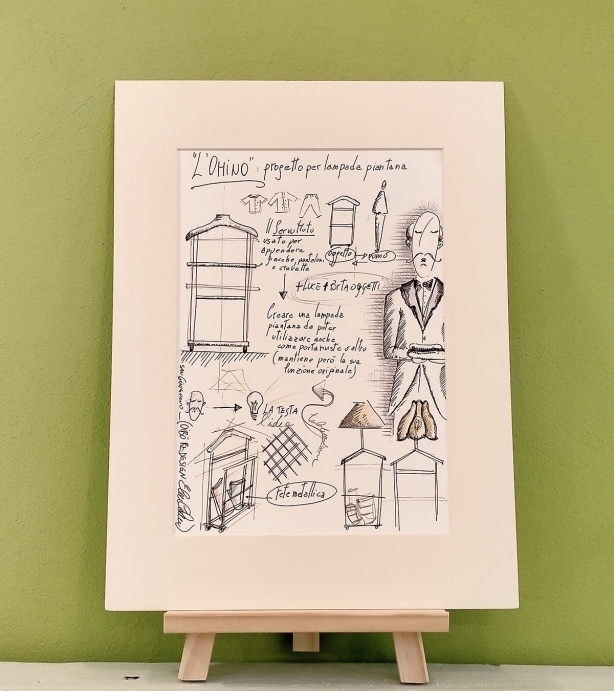 "L'OMINO": progetto per lampada piantana
Il Servomuto
usato per
appendere
giacche, pantaloni
e cravatte
oggetto → uomo
+ LUCE + PORTAOGGETTI
Creare una lampada
piantana da poter
utilizzare anche
come portariviste o altro
(mantiene però la sua
funzione originale)
LA TESTA
l'idea
rete metallica
REDESIGN